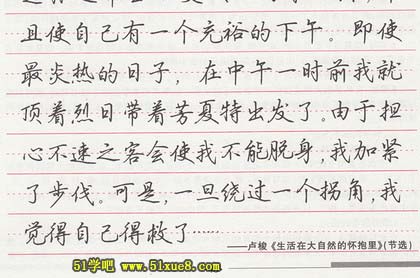 且使自己有一个充裕的下午。即使
最炎热的日子，在中午一时前我就
顶着烈日带着芳夏特出发了。由于担
心不速之客会使我不能脱身，我加紧
了步伐。可是，一旦绕过一个拐角，我
觉得自己得救了……
——卢梭《生活在大自然的怀抱里》(节选)
51学吧 www.51xue8.com